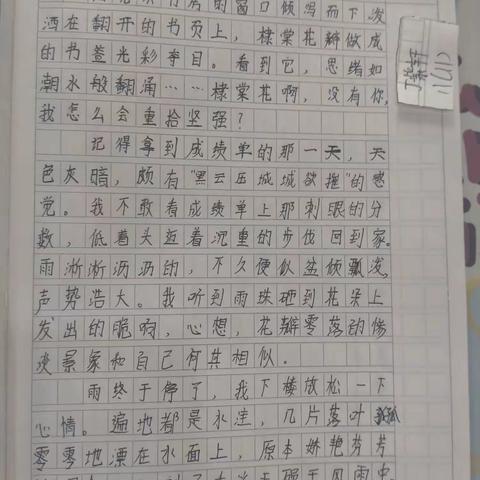 的窗口倾泻而下,泼
洒在翻开的书页上,棣棠花瓣做成
的书签光彩夺目。看到它,思绪如
潮水般翻涌……棣棠花啊,没有你,
我怎么会重拾坚强?
记得拿到成绩单的那一天,天
色灰暗,颇有"黑云压城城欲摧"的感
觉。我不敢看成绩单上那刺眼的分
数,低着头迈着沉重的步伐回到家。
雨淅淅沥沥的,不久便似盆倾瓢泼,
声势浩大。我听到雨珠砸到花朵上
发出的脆响,心想,花瓣零落的
景象和自己何其相似。
雨终于停了,我下楼放松一下
心情。遍地都是水洼,几片落叶孤
零零地漂在水面上,原本娇艳芬芳